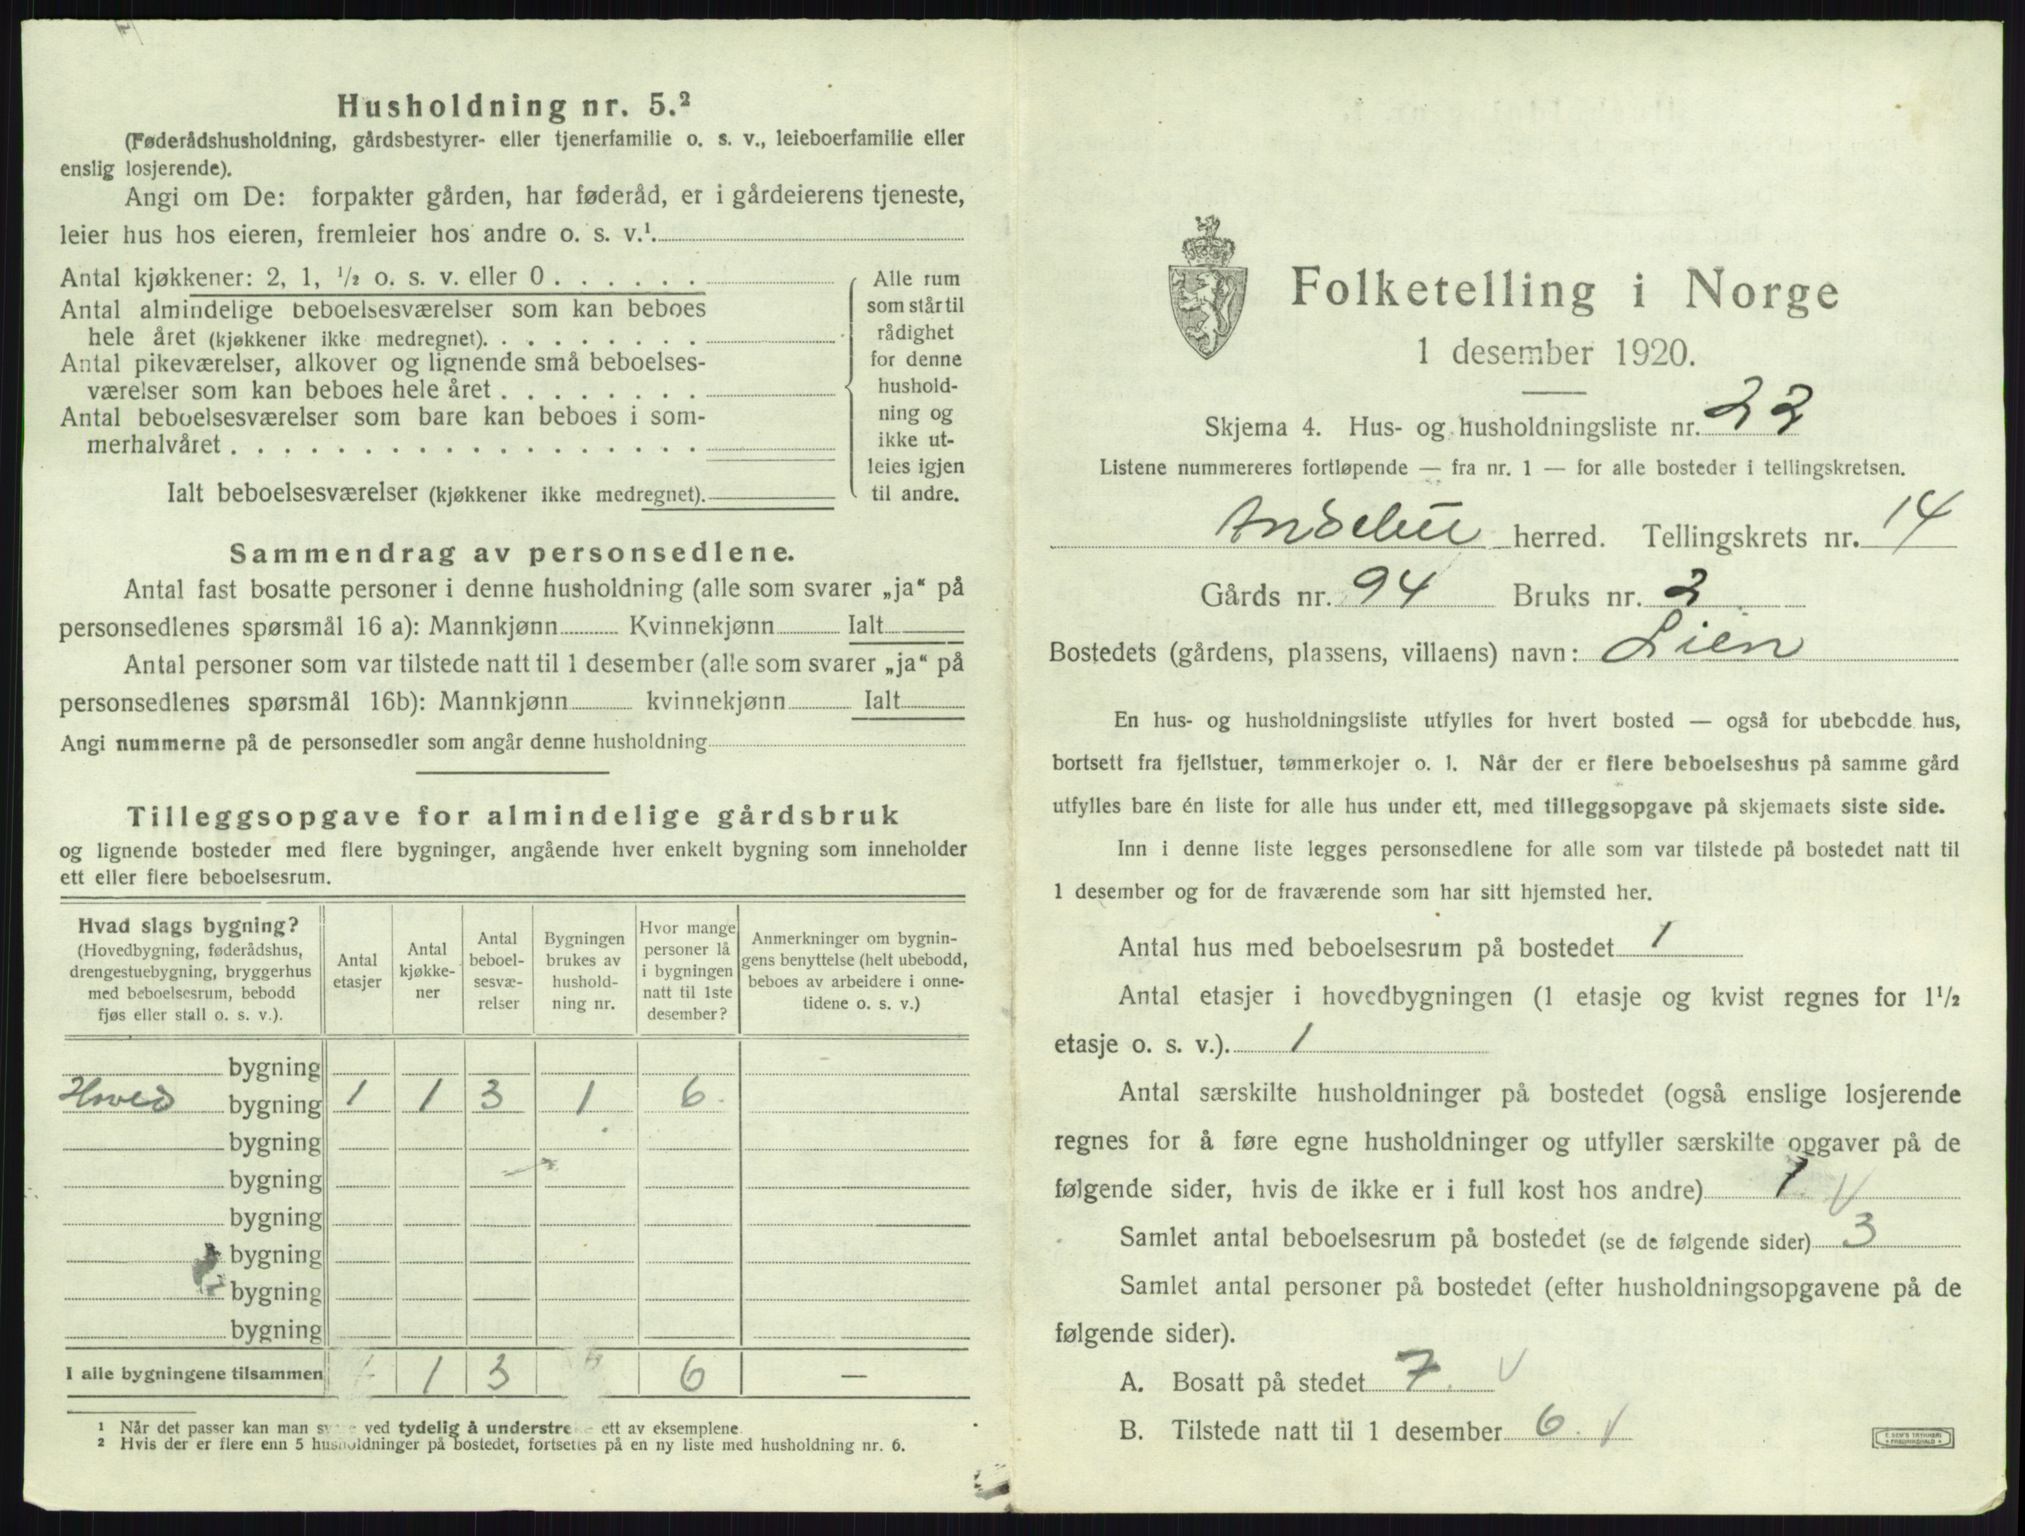 Husholdning nr. 5.²
(Føderådshusholdning, gårdsbestyrer- eller tjenerfamilie o. s. v., leieboerfamilie eller
enslig losjerende).
Angi om De: forpakter gården, har føderåd, er i gårdeierens tjeneste,
leier hus hos eieren, fremleier hos andre o. s. v.¹
Antal kjøkkener: 2, 1, ½ o. s. v. eller 0
Antal almindelige beboelsesværelser som kan beboes
hele året (kjøkkener ikke medregnet)
Antal pikeværelser, alkover og lignende små beboelses-
værelser som kan beboes hele året
Antal beboelsesværelser som bare kan beboes i som-
merhalvåret
Ialt beboelsesværelser (kjøkkener ikke medregnet)
Alle rum
som står til
rådighet
for denne
hushold-
ning og
ikke ut-
leies igjen
til andre.
Sammendrag av personsedlene.
Antal fast bosatte personer i denne husholdning (alle som svarer „ja“ på
personsedlenes spørsmål 16 a): Mannkjønn Kvinnekjønn Ialt
Antal personer som var tilstede natt til 1 desember (alle som svarer „ja“ på
personsedlenes spørsmål 16b): Mannkjønn kvinnekjønn Ialt
Angi nummerne på de personsedler som angår denne husholdning
Tilleggsopgave for almindelige gårdsbruk
og lignende bosteder med flere bygninger, angående hver enkelt bygning som inneholder
ett eller flere beboelsesrum.
Hvad slags bygning?
(Hovedbygning, føderådshus,
drengestuebygning, bryggerhus
med beboelsesrum, bebodd
fjøs eller stall o. s. v.).
Antal
etasjer
Antal
kjøkke-
ner
Antal
beboel-
sesvæ-
relser
Bygningen
brukes av
hushold-
ning nr.
Hvor mange
personer lå
i bygningen
natt til 1ste
desember?
Anmerkninger om bygnin-
gens benyttelse (helt ubebodd,
beboes av arbeidere i onne-
tidene o. s. v.)
bygning
Hoved bygning 1 1 3 1 6
bygning
bygning
bygning
bygning
bygning
bygning
I alle bygningene tilsammen 1 3 6 —
¹ Når det passer kan man ved tydelig å understre ett av eksemplene
² Hvis der er flere enn 5 husholdninger på bostedet, fortsettes på en ny liste med husholdning nr. 6.
Folketelling i Norge
1 desember 1920.
Skjema 4. Hus- og husholdningsliste nr. 22
Listene nummereres fortløpende — fra nr. 1 — for alle bosteder i tellingskretsen.
Andebu herred. Tellingskrets nr. 14
Gårds nr. 94 Bruks nr. 2
Bostedets (gårdens, plassens, villaens) navn: Lien
En hus- og husholdningsliste utfylles for hvert bosted — også for ubebodde hus,
bortsett fra fjellstuer, tømmerkojer o. l. Når der er flere beboelseshus på samme gård
utfylles bare én liste for alle hus under ett, med tilleggsopgave på skjemaets siste side.
Inn i denne liste legges personsedlene for alle som var tilstede på bostedet natt til
1 desember og for de fraværende som har sitt hjemsted her.
Antal hus med beboelsesrum på bostedet 1
Antal etasjer i hovedbygningen (1 etasje og kvist regnes for 1½
etasje o. s. v.). 1
Antal særskilte husholdninger på bostedet (også enslige losjerende
regnes for å føre egne husholdninger og utfyller særskilte opgaver på de
følgende sider, hvis de ikke er i full kost hos andre) 1 V
Samlet antal beboelsesrum på bostedet (se de følgende sider) 3
Samlet antal personer på bostedet (efter husholdningsopgavene på de
følgende sider).
A. Bosatt på stedet 7 V
B. Tilstede natt til 1 desember 6 V